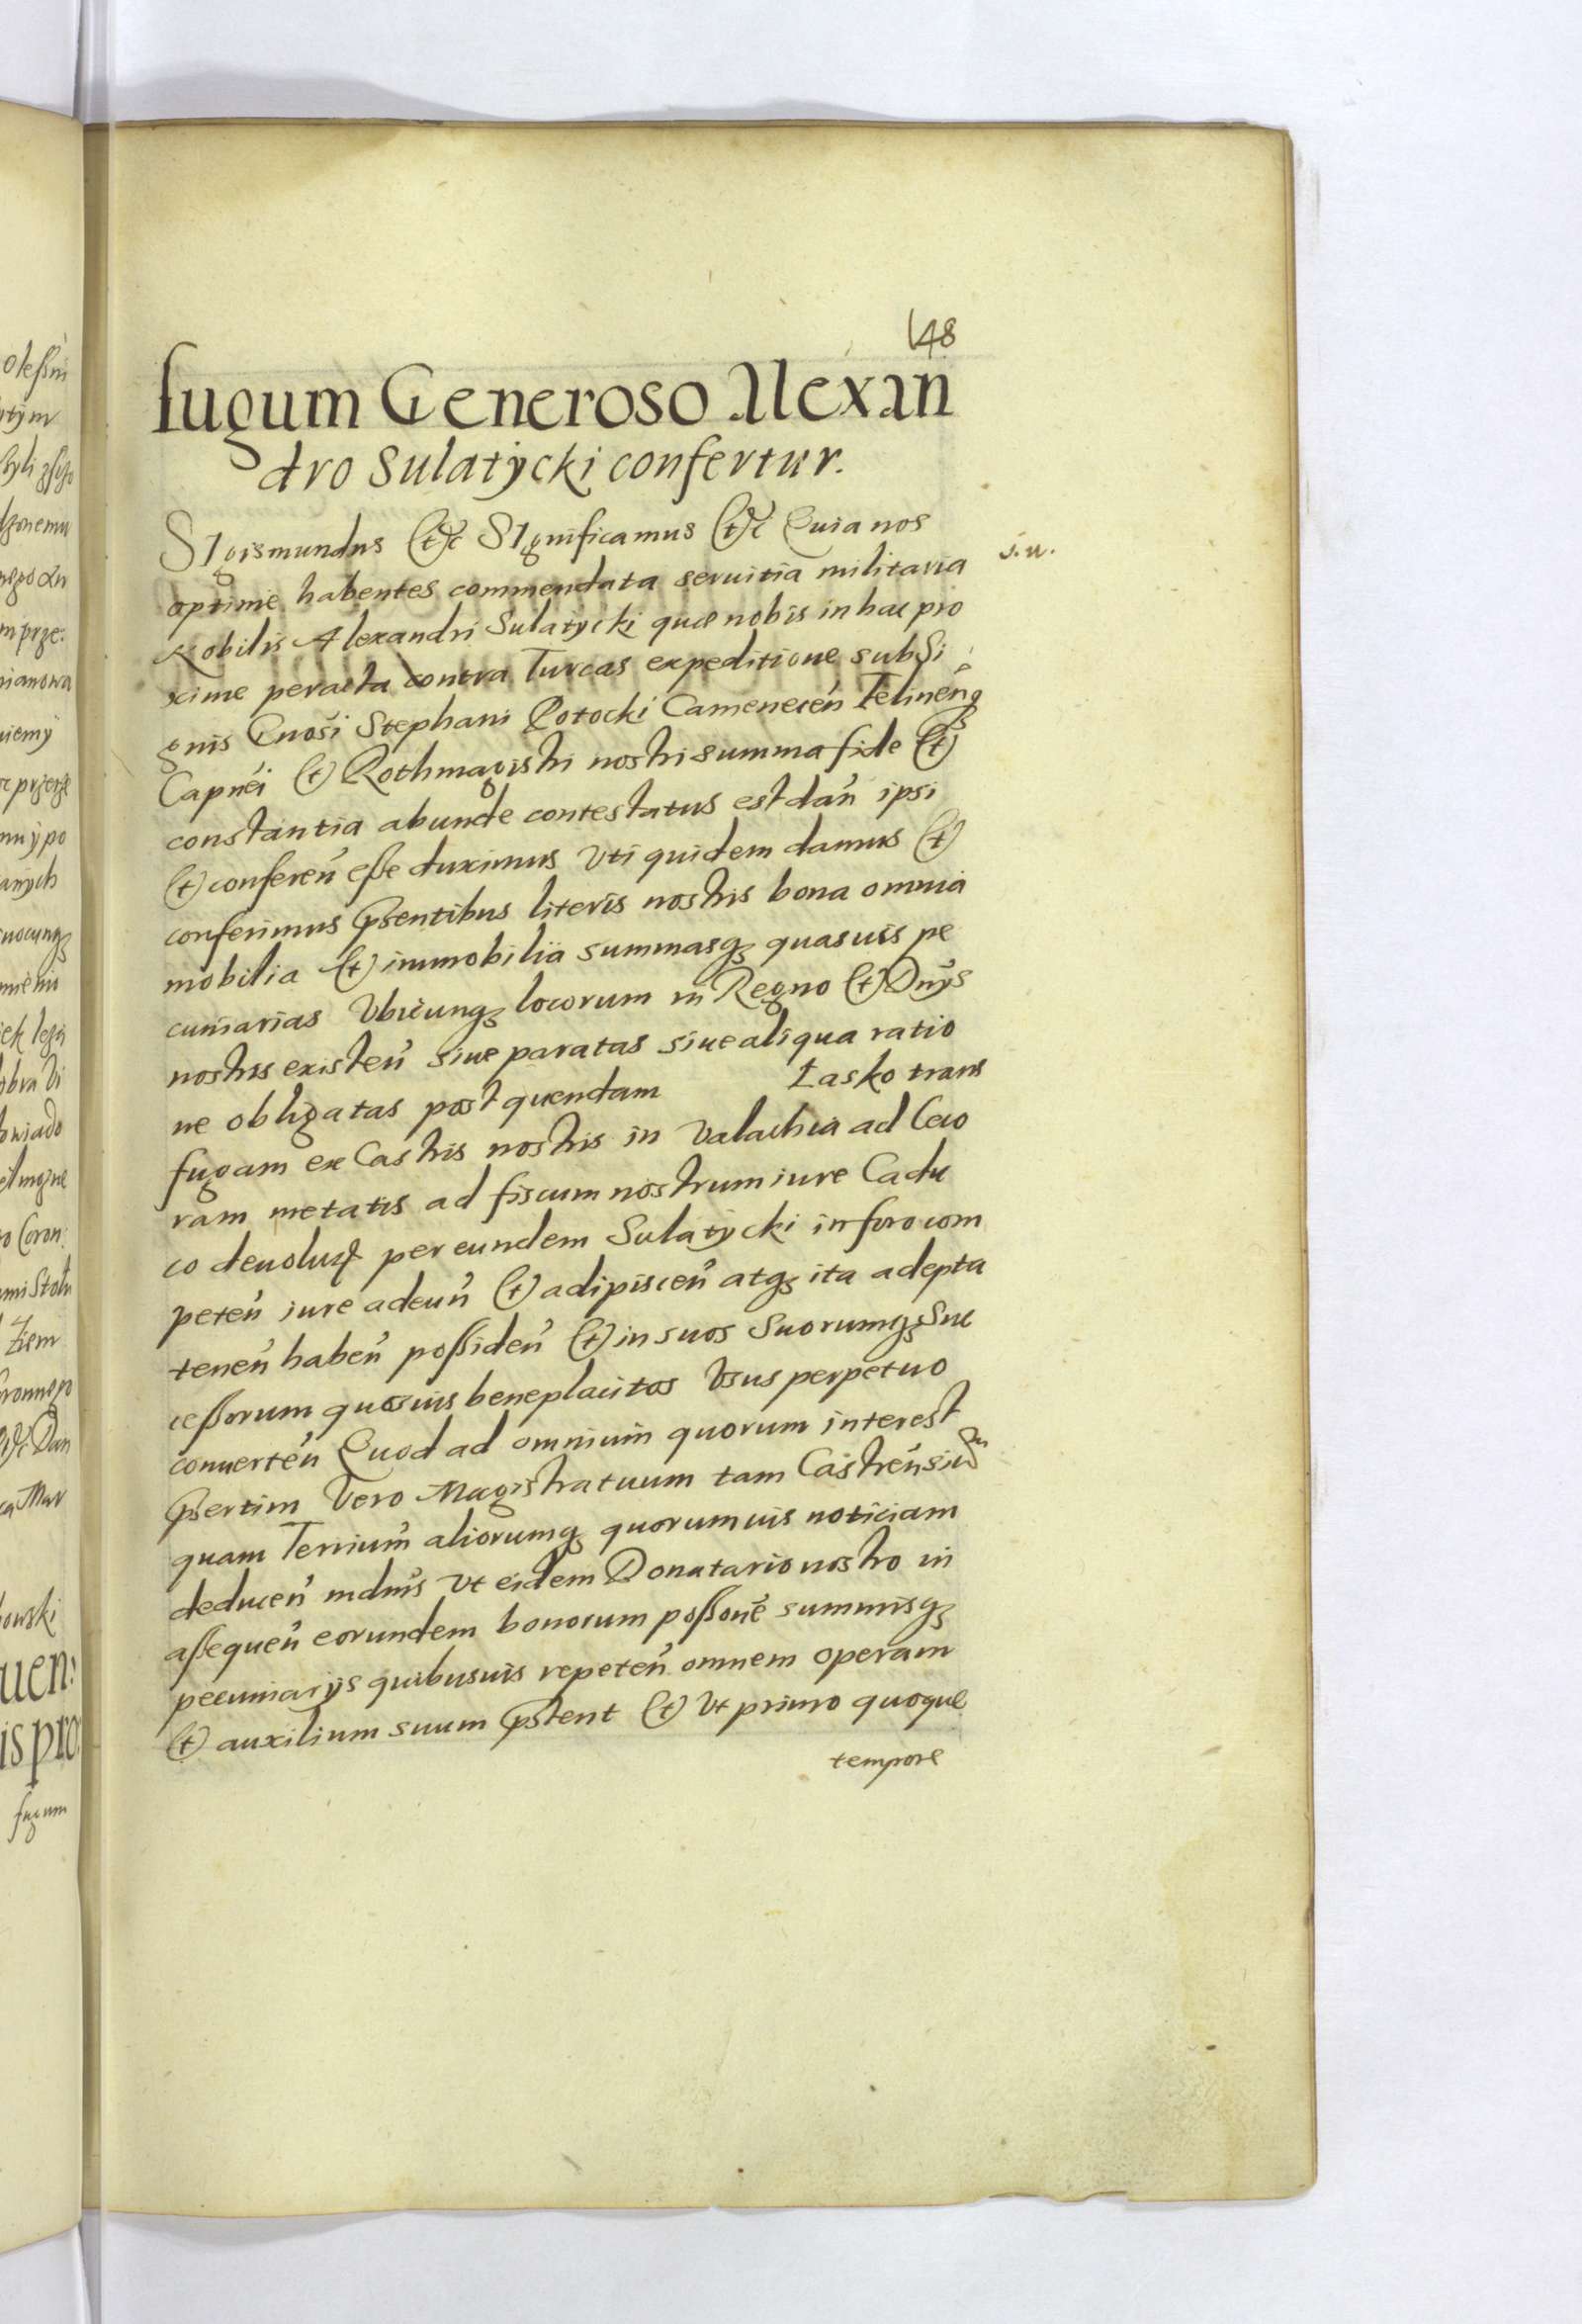 148
fugum Generoso Alexan
dro Sulatÿcki confertur.
SIgismundus &c SIgnificamus &c Quia nos
s. u.
optime habentes commendata seruitia militaria
Nobilis Alexandri Sulatycki quæ nobis in hac pro
xime peracta contra Turcas expeditione sub Si
gnis Gnosi Stephani Potocki Camenecen̄ Felinen̄q₃
Capnei & Rothmagistri nostri summa fide &
constantia abunde contestatus est dan̄ ipsi
& conferen̄ esse duximus Vti quidem damus &
conferimus pr̄sentibus literis nostris bona omnia
mobilia & immobilia summasq₃ quasuis pe
cuniarias Vbicunq₃ locorum in Regno & Dnÿs
nostris existen̄ siue paratas siue aliqua ratio
ne obligatas post quendam Łasko trans
fugam ex Castris nostris in Valachia ad Ceco
ram metatis ad fiscum nostrum iure Cadu
co deuolut per eundem Sulatÿcki in foro com
peten̄ iure adeun̄ & adipiscen̄ atq₃ ita adepta
tenen̄ haben̄ possiden̄ & in suos Suorumq₃ Suc
cessorum quosuis beneplacitos Vsus perpetuo
conuerten̄ Quod ad omnium quorum interest
pr̄sertim Vero Magistratuum tam Castren̄sium
quam Terrium̄ aliorumq₃ quorumuis noticiam
deducen̄ mdm̄s Vt eidem Donatario nostro in
assequen̄ eorundem bonorum possone summisq₃
pecuniarÿs quibusuis repeten̄ omnem operam
& auxilium suum pr̄stent & Vt primo quoque
tempore